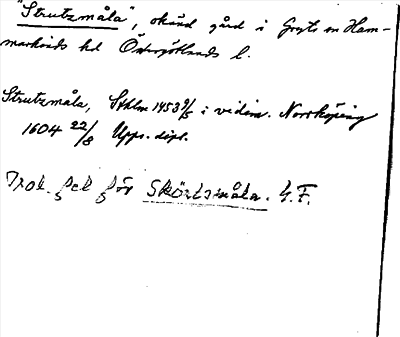 "Strutzmåla", okänd gård i Gryts sn Ham-
markinds hd Östergötlands l.
Strutzmåla, Sthlm 1453 9/5 i vidim. Norrköping
1604 22/8 Upps. dipl.
Trol. fel för Skörtsmåla. G.F.